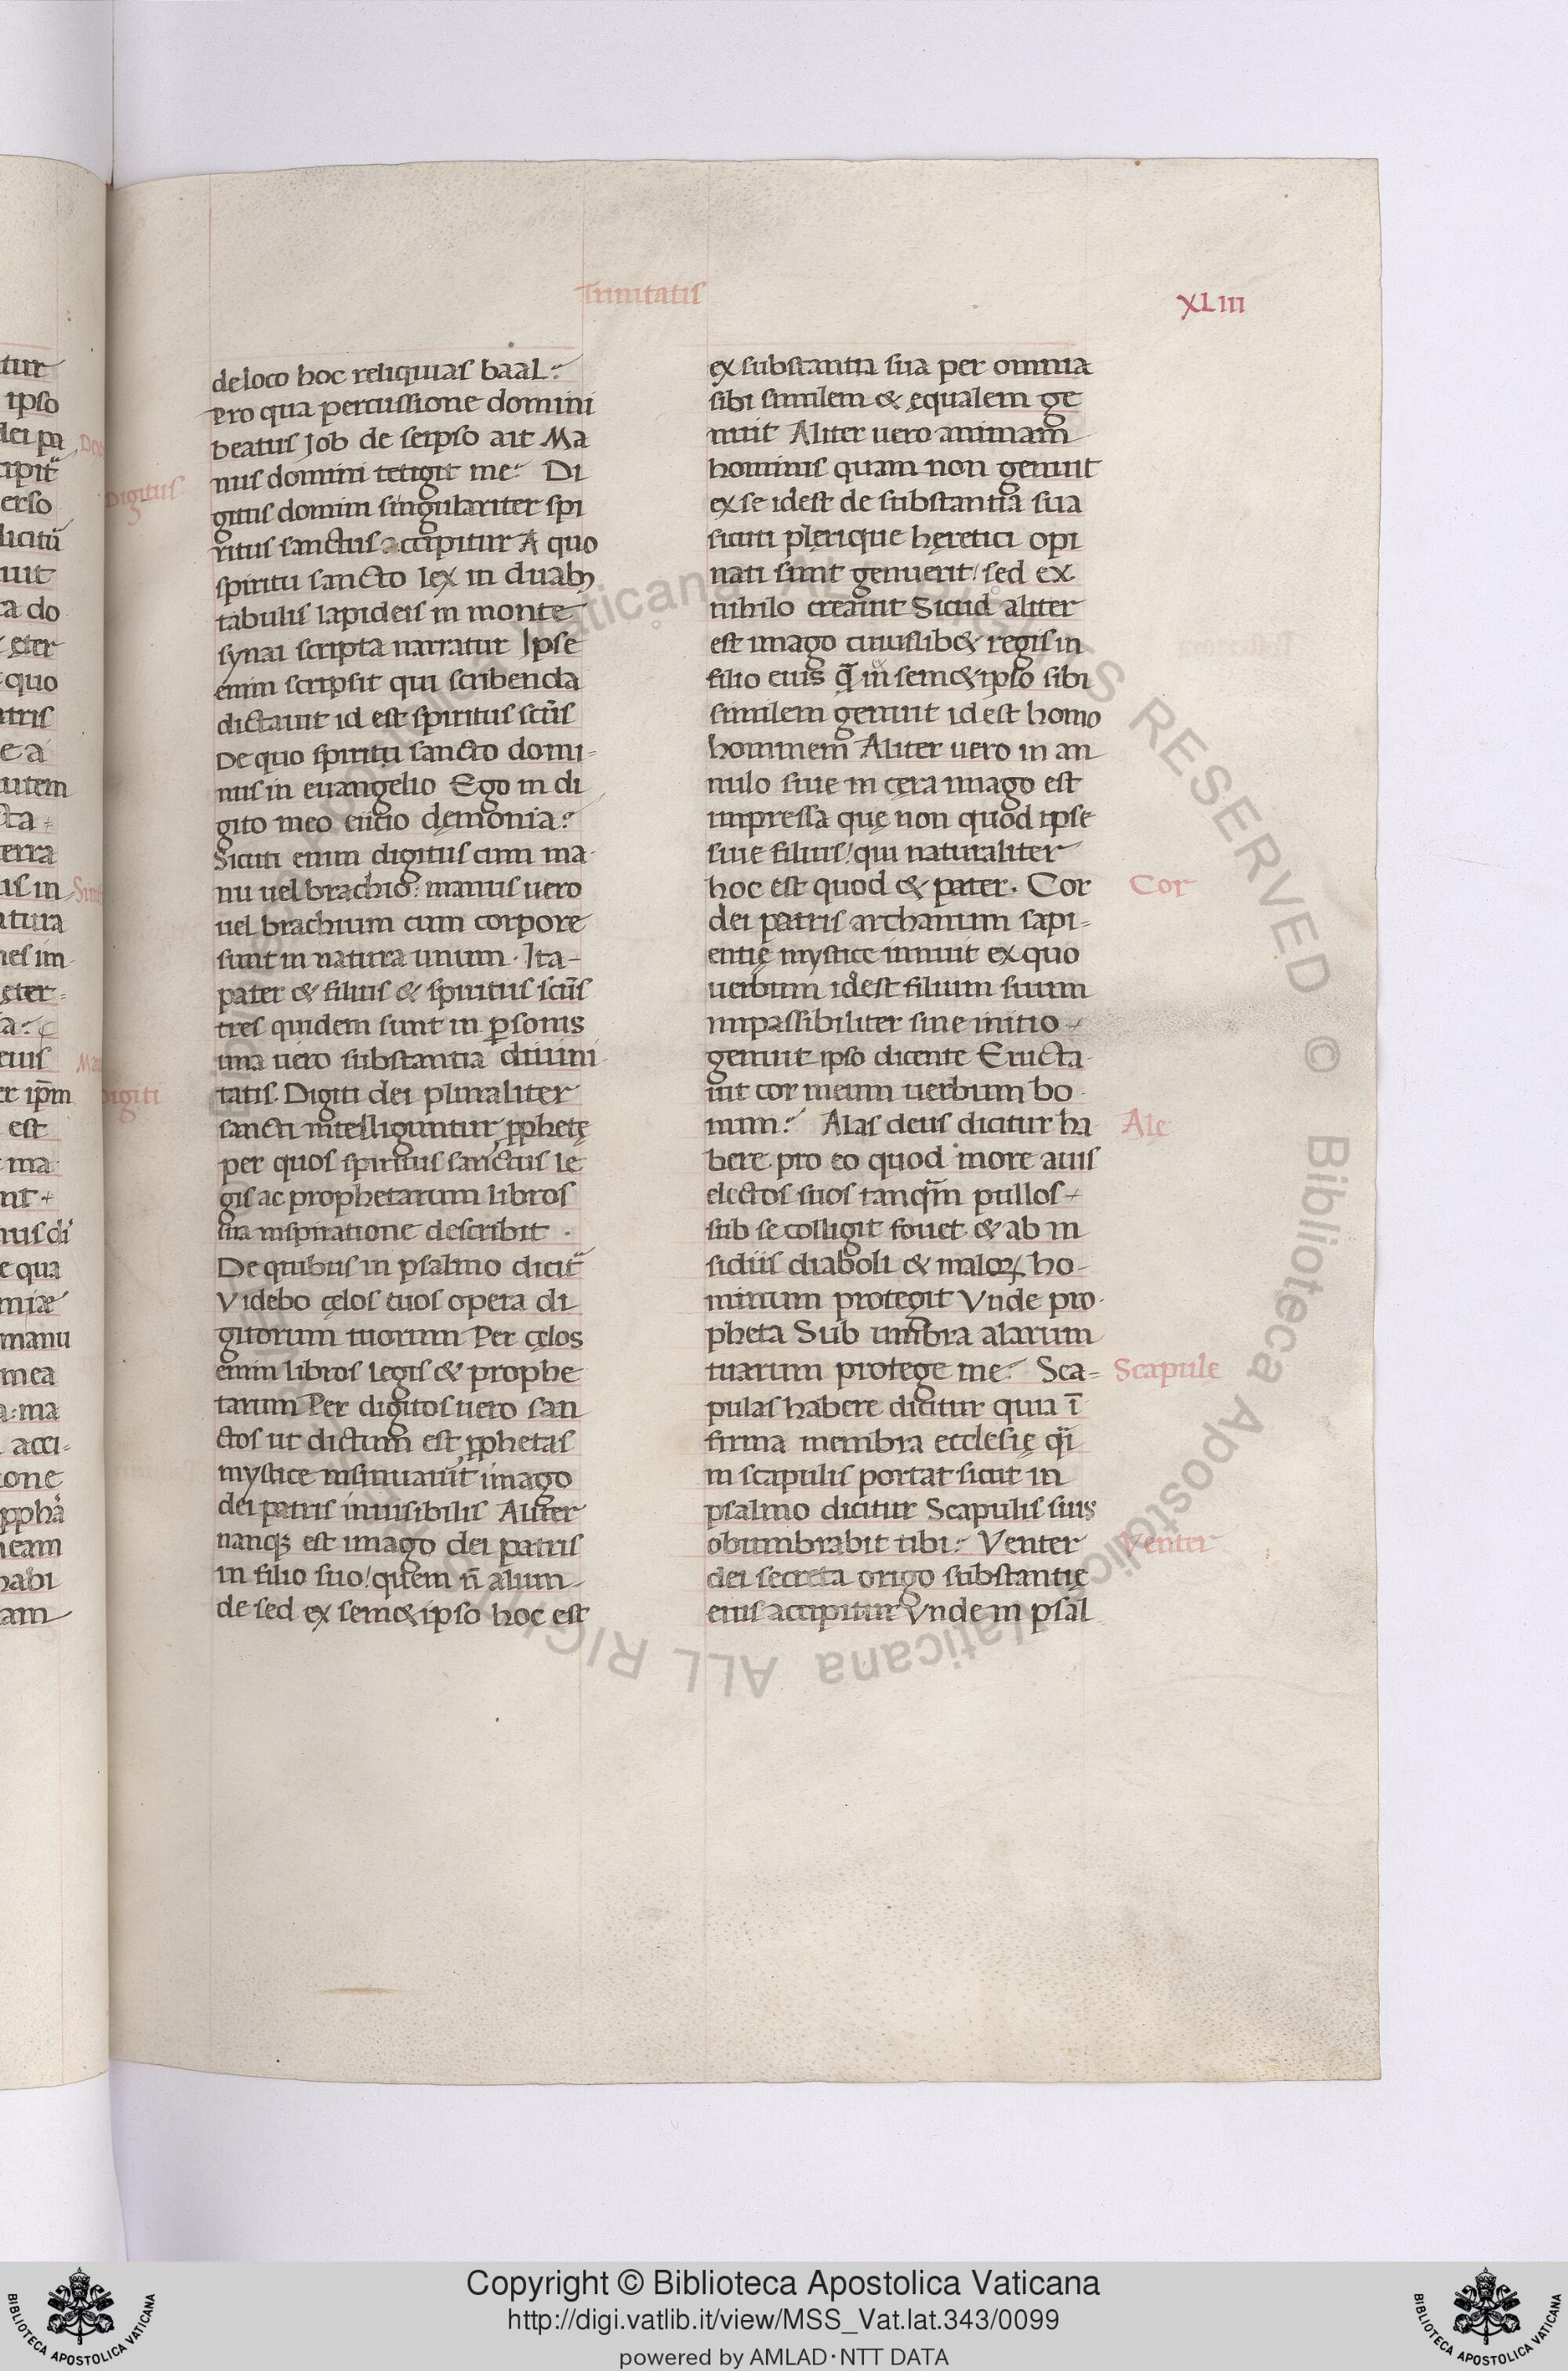 Trinitatis
XLIII
de loco hoc reliquias baal:
Pro qua percussione domini
beatus Job de seipso ait Ma
nus domini tetigit me: Di
Digitus
gitus domini singulariter spi
ritus sanctus accipitur A quo
spiritu sancto lex in duabꝰ
tabulis lapideis in monte
synai scripta narratur Ipse
enim scripsit qui scribenda
dictauit id est spiritus sc̄us
De quo spiritu sancto domi-
nus in euangelio Ego in di
gito meo eiicio dęmonia:
Sicuti enim digitus cum ma-
nu uel brachio: manus uero
uel brachium cum corpore
sunt in natura unum. Ita-
pater & filius & spiritus sc̄us
tres quidem sunt in ꝑsonis
una uero substantia diuini-
tatis. Digiti dei pluraliter
Digiti
sancti intelliguntur ꝓphetę
per quos spiritus sanctus le
gis ac prophetarum libros
sua inspiratione describit.
De quibus in psalmo dicit᷑
Videbo cęlos tuos opera di
gitorum tuorum Per cęlos
enim libros legis & prophe
tarum Per digitos uero san
ctos ut dictum est ꝓphetas
mystice insinuauit imago
dei patris inuisibilis Aliter
nanqꝫ est imago dei patris
in filio suo/ quem n̄ alium-
de sed ex sem&ipso hoc est
ex substantia sua per omnia
sibi similem & ęqualem ge
nuit Aliter uero animam
hominis quam non genuit
ex se idest de substantia sua
sicuti plerique hęretici opi
nati sunt genuerit/ sed ex
nihilo creauit Sicud aliter
est imago cuiuslib& regis in
filio eius q̄ in sem&ipso sibi
similem genuit id est homo
hominem Aliter uero in an
nulo siue in cęra imago est
impressa quę non quod ipse
siue filius/ qui naturaliter
hoc est quod & pater. Cor
Cor
dei patris archanum sapi-
entię mystice innuit ex quo
uerbum idest filium suum
impassibiliter sine initio-
genuit ipso dicente Eructa-
uit cor meum uerbum bo
num: Alas deus dicitur ha
Ale
bere pro eo quod more auis
electos suos tanq̄m pullos-
sub se colligit fouet & ab in
sidiis diaboli & maloꝝ ho-
minum protegit Vnde pro-
pheta Sub umbra alarum
tuarum protege me: Sca-
Scapule
pulas habere dicitur quia ī
firma membra ecclesię q̄i
in scapulis portat sicut in
psalmo dicitur Scapulis suis
obumbrabit tibi: Venter
Venter
dei secreta origo substantię
eius accipitur Vnde in psal
Copyright © Biblioteca Apostolica Vaticana
http://digi.vatlib.it/view/MSS_Vat.lat.343/0099
powered by AMLAD·NTT DATA